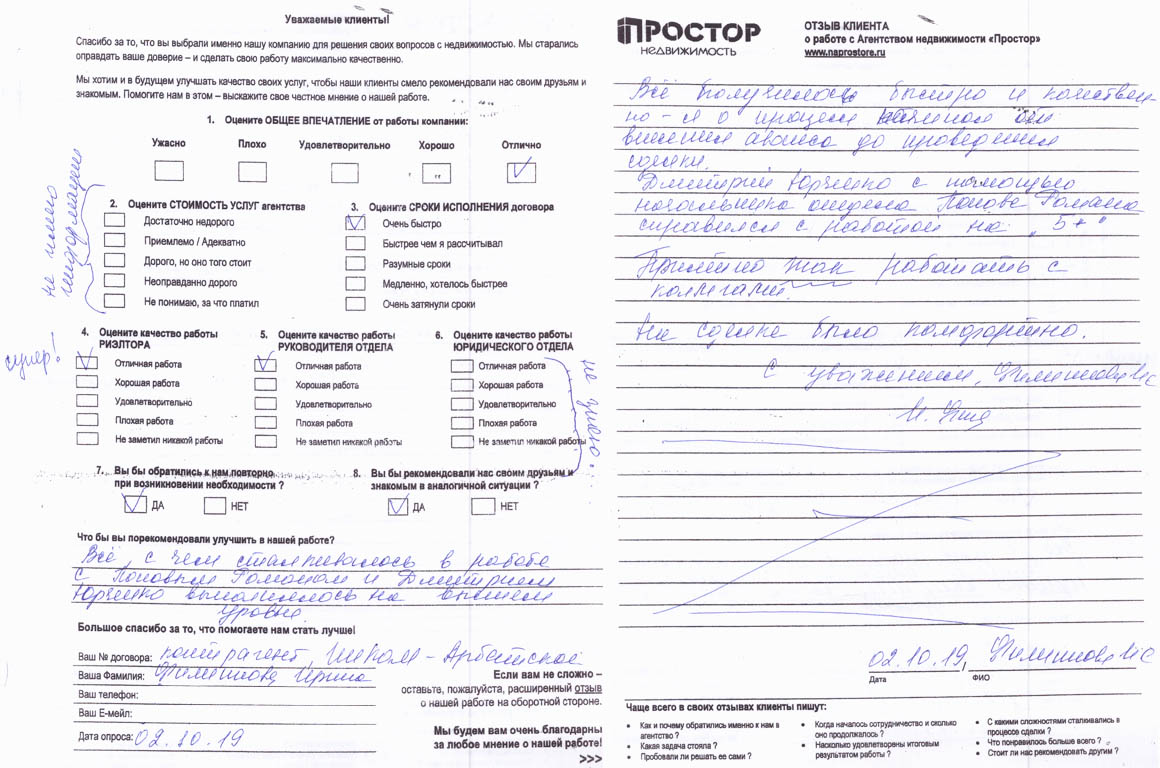 Уважаемые клиенты!
Спасибо за то, что вы выбрали именно нашу компанию для решения своих вопросов с недвижимостью. Мы старались
оправдать ваше доверие – и сделать свою работу максимально качественно.
Мы хотим и в будущем улучшать качество своих услуг, чтобы наши клиенты смело рекомендовали нас своим друзьям и
знакомым. Помогите нам в этом – выскажите свое честное мнение о нашей работе.
1. Оцените ОБЩЕЕ ВПЕЧАТЛЕНИЕ от работы компании:
Ужасно Плохо Удовлетворительно Хорошо Отлично
не имею
информации
2. Оцените СТОИМОСТЬ УСЛУГ агентства
Достаточно недорого
Приемлемо / Адекватно
Дорого, но оно того стоит
Неоправданно дорого
Не понимаю, за что платил
3. Оцените СРОКИ ИСПОЛНЕНИЯ договора
Очень быстро
Быстрее чем я рассчитывал
Разумные сроки
Медленно, хотелось быстрее
Очень затянули сроки
супер!
4. Оцените качество работы
РИЭЛТОРА
Отличная работа
Хорошая работа
Удовлетворительно
Плохая работа
Не заметил никакой работы
5. Оцените качество работы
РУКОВОДИТЕЛЯ ОТДЕЛА
Отличная работа
Хорошая работа
Удовлетворительно
Плохая работа
Не заметил никакой работы
6. Оцените качество работы
ЮРИДИЧЕСКОГО ОТДЕЛА
Отличная работа
Хорошая работа
Удовлетворительно
Плохая работа
Не заметил никакой работы
не знаю.
7. Вы бы обратились к нам повторно
при возникновении необходимости ?
ДА НЕТ
8. Вы бы рекомендовали нас своим друзьям и
знакомым в аналогичной ситуации ?
ДА НЕТ
Что бы вы порекомендовали улучшить в нашей работе?
Всё, с чем сталкивалось в работе
с Поповым Романом и Дмитрием
Юрченко выполнялось на высшем
уровне.
Большое спасибо за то, что помогаете нам стать лучше!
Ваш № договора: контрагент, Инком - Арбатское
Ваша Фамилия: Филиппова Ирина
Ваш телефон:
Ваш Е-мейл:
Дата опроса: 02.10.19
Если вам не сложно –
оставьте, пожалуйста, расширенный отзыв
о нашей работе на оборотной стороне.
Мы будем вам очень благодарны
за любое мнение о нашей работе!
>>>
ПРОСТОР
НЕДВИЖИМОСТЬ
ОТЗЫВ КЛИЕНТА
о работе с Агентством недвижимости «Простор»
www.naprostore.ru
Всё получилось быстро и качествен-
но - я о процессе начиная от
внесения аванса до проведения
сделки.
Дмитрий Юрченко с помощью
начальника отдела Попова Романа
справился с работой на „5+"
Приятно так работать с
коллегами.
На сделке было комфортно.
С уважением, Филиппова И.С
02.10.19, Филиппова И.С
Дата ФИО
Чаще всего в своих отзывах клиенты пишут:
• Как и почему обратились именно к нам в
агентство ?
• Какая задача стояла ?
• Пробовали ли решать ее сами ?
• Когда началось сотрудничество и сколько
оно продолжалось ?
• Насколько удовлетворены итоговым
результатом работы ?
• С какими сложностями сталкивались в
процессе сделки ?
• Что понравилось больше всего ?
• Стоит ли нас рекомендовать другим ?